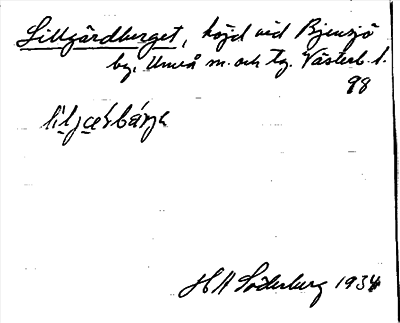 Lillgärdberget, höjd vid Bjensjö
by, Umeå m. och tg. Västerb. l.
98
H Söderberg 1934